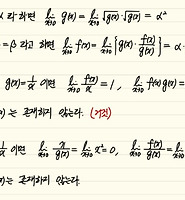 라 하면 lim_{x→0} g(x) = lim_{x→0} √g(x) · √g(x) = α²
= β 라고 하면 lim_{x→0} f(x) = lim_{x→0} { g(x) · f(x)/g(x) } = α ·
g(x) = 1/x 이면 lim_{x→0} f(x)/x = 1, lim_{x→0} f(x)g(x) =
)는 존재하지 않는다. (거짓)
이면 lim_{x→0} x/g(x) = lim_{x→0} x² = 0, lim_{x→0} f(x)/g(x) = lim_{x→0}
)는 존재하지 않는다.